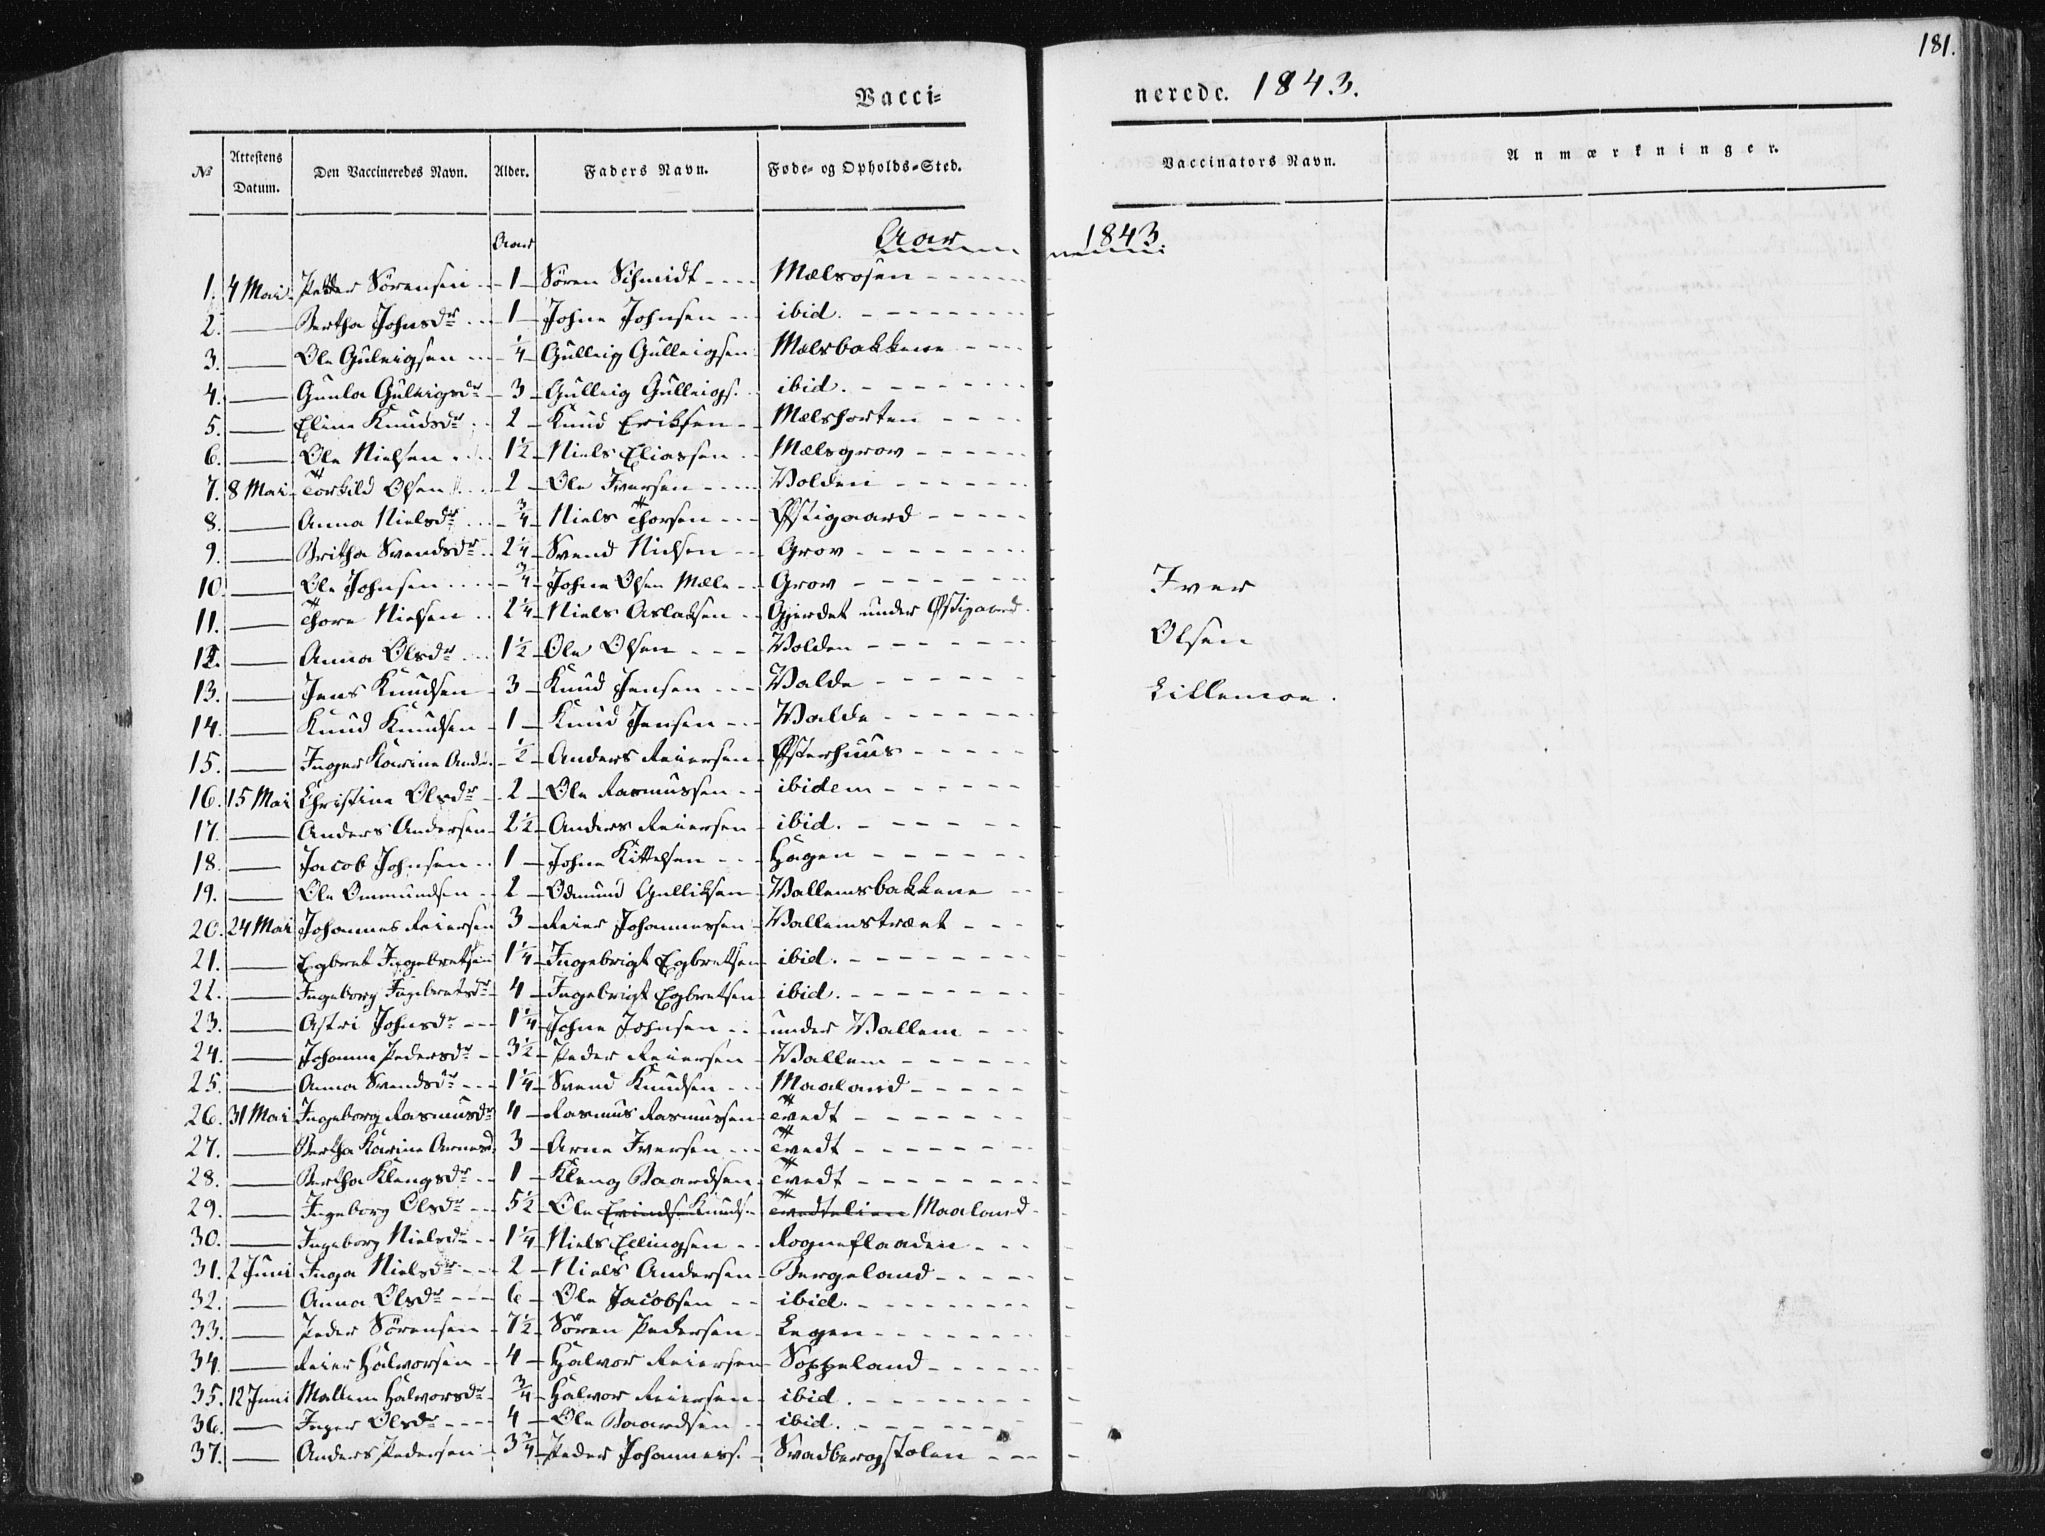 181.
Vacci= nerede. 1843.
№ Attestens Datum. Den Vaccineredes Navn. Alder. Faders Navn. Føde- og Opholds-Sted. Vaccinators Navn. Anmærkninger.
Aar Aar 1843.
1. 4 Mai Peder Sörensen 1 Sören Schmidt Mælsosen
2. Bertha Johnsdr 1 Johne Johnsen ibid.
3. Ole Guleigsen 1/4 Gulleig Gulleigsen Mælsbakkene
4. Gunla Guleigsdr 3 Gulleig Gulleigs. ibid.
5. Eline Knudsdr 2 Knud Eriksen Mælshorten
6. Ole Nielsen 1 1/2 Niels Eliassen Mælsgrov
7. 8 Mai Torkild Olsen 2 Ole Iversen Volden
8. Anna Nielsdr 3/4 Niels Thorsen Østigaard
9. Britha Svendsdr 2 1/4 Svend Nielsen Grov
10. Ole Johnsen 3/4 Johne Olsen Mæle Grov
11. Thore Nielsen 2 1/4 Niels Aslaksen Gjerdet under Østigaard
12. Anna Olsdr 1 1/2 Ole Olsen Volden
13. Jens Knudsen 3 Knud Jensen Valde
14. Knud Knudsen 1 Knud Jensen Valde
15. Inger Karine And. 1/2 Anders Reiersen Østerhuus
16. 15 Mai Christine Olsdr 2 Ole Rasmussen ibidem
17. Anders Andersen 2 1/2 Anders Reiersen ibid.
18. Jacob Johnsen 1 Johne Kittelsen Hagen
19. Ole Ommundsen 2 Odmund Gulliksen Vallemsbakkene
20. 24 Mai Johannes Reiersen 3 Reier Johannessen Vallemstræet
21. Egbret Ingebretsen 1 1/4 Ingebrigt Egbretsen ibid.
22. Ingeborg Ingebretsdr 4 Ingebrigt Egbretsen ibid.
23. Astri Johnsdr 1 1/4 Johne Johnsen under Vallem
24. Johanne Pedersdr 3 1/2 Peder Reiersen Vallem
25. Anna Svendsdr 1 1/4 Svend Knudsen Maaland
26. 31 Mai Ingeborg Rasmusdr 4 Rasmus Rasmussen Tvedt
27. Bertha Karine Arnesd. 3 Arne Iversen Tvedt
28. Bertha Klengsdr 1 Kleng Baardsen Tvedt
29. Ingeborg Olsdr 5 1/2 Ole Knuds. Tvedtelien Maaland
30. Ingeborg Nielsdr 1 1/4 Niels Ellingsen Rogneflaaden
31. 2 Juni Inga Nielsdr 2 Niels Andersen Bergeland
32. Anna Olsdr 6 Ole Jacobsen ibid.
33. Peder Sörensen 7 1/2 Sören Pedersen Legen
34. Reier Halvorsen 4 Halvor Reiersen Soppeland
35. 12 Juni Mallene Halvorsdr 3/4 Halvor Reiersen ibid.
36. Inger Olsdr 4 Ole Baardsen ibid.
37. Anders Pedersen 3 3/4 Peder Johanness. Svadbergstolen
Iver
Olsen
Lillemoe.